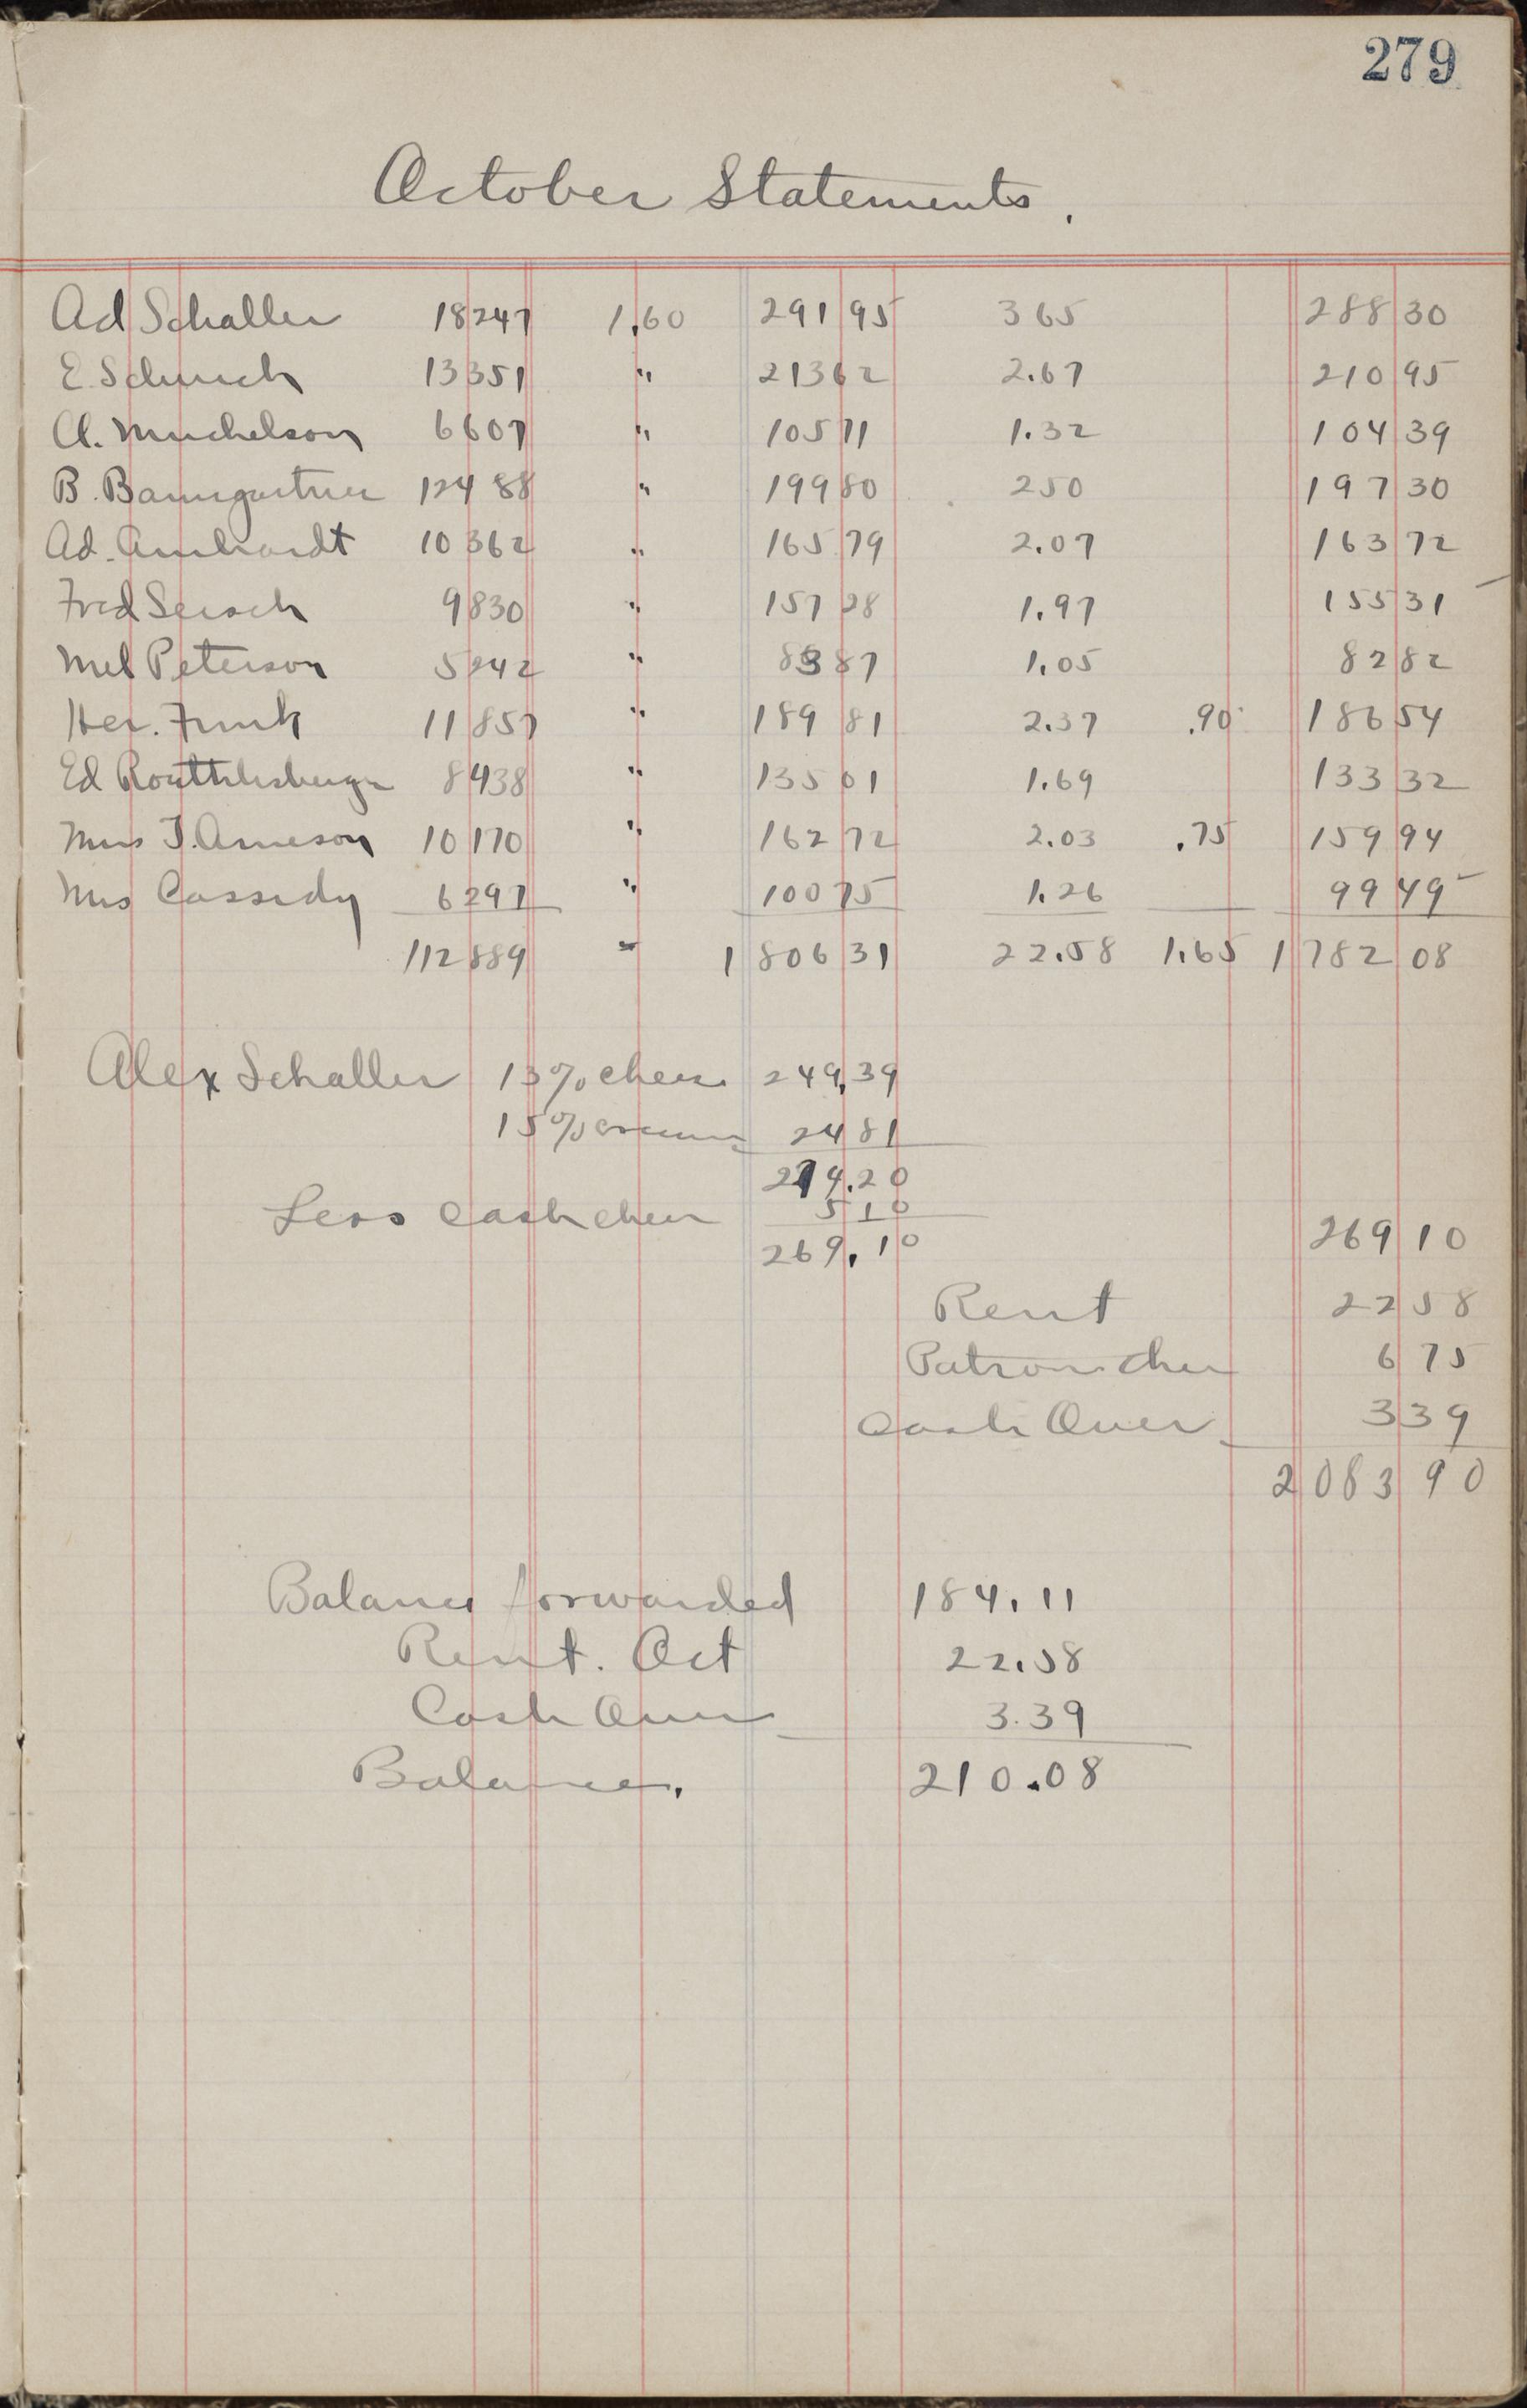 279
October Statements.
Ad Schaller 18247 1.60 291 95 365 288 30
E. Schurch 13351 " 213 62 2.67 210 95
A. Muchelson 6607 " 105 71 1.32 104 39
B. Baumgartner 12488 " 199 80 250 197 30
Ad. Amhardt 10362 " 165 79 2.07 163 72
Fred 9830 " 157 28 1.97 155 31
Mel Peterson 5242 " 83 87 1.05 82 82
Her. Funk 11857 " 189 81 2.37 .90 186 54
Ed 8438 " 135 01 1.69 133 32
Mrs T. Arneson 10170 " 162 72 2.03 .75 159 94
Mrs Cassidy 6297 " 100 75 1.26 99 49
112889 " 1806 31 22.58 1.65 1782 08
Alex Schaller 13% chees 249.39
15% cream 24 81
274.20
Less Cash chees 5 10
269.10 269 10
Rent 22 58
Patron chees 6 75
Cash Over 3 39
2083 90
Balance forwarded 184.11
Rent. Oct 22.58
Cash Over 3.39
Balance. 210.08